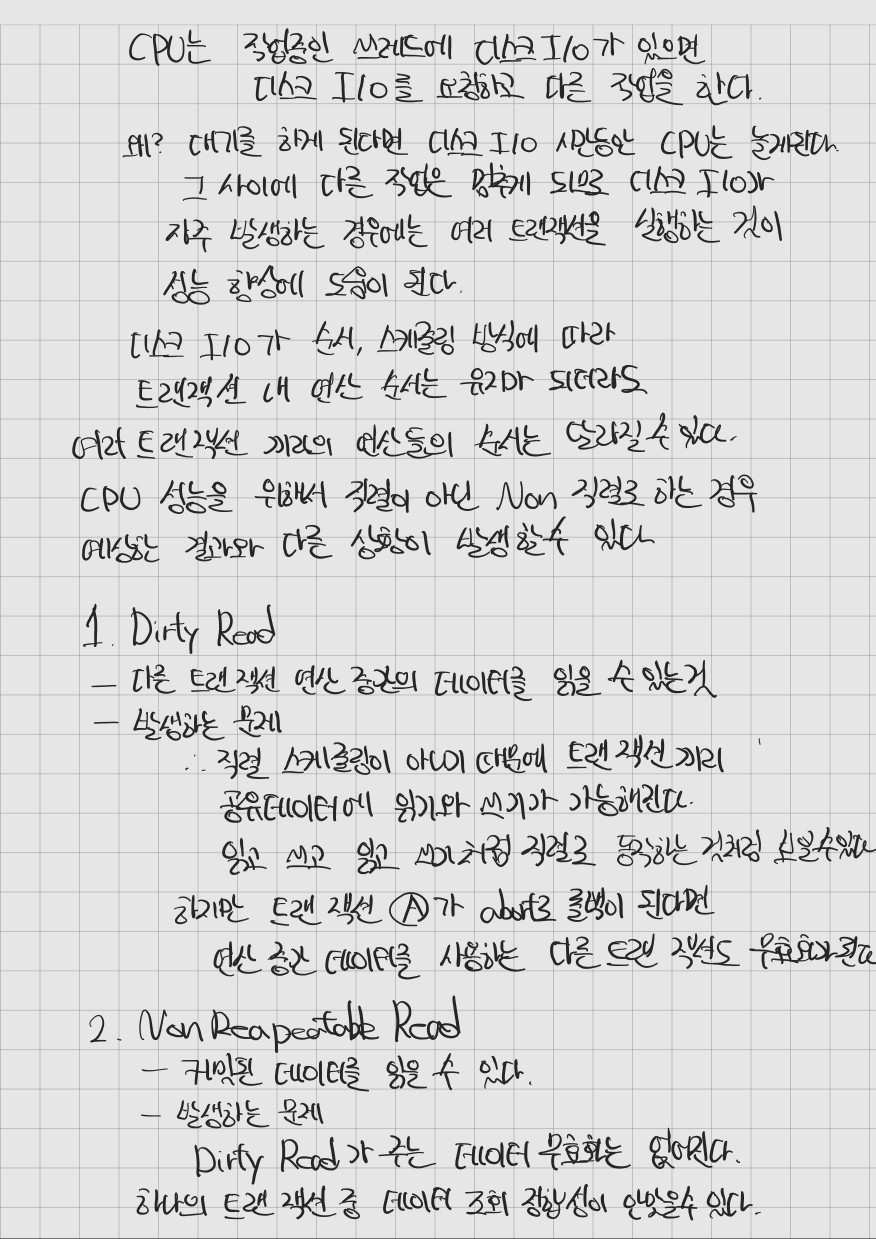 CPU는 작업중인 쓰레드에 디스크 I/O가 있으면
디스크 I/O를 요청하고 다른 작업을 한다.
왜? 대기를 하게 된다면 디스크 I/O 시간동안 CPU는 놀게된다
그 사이에 다른 작업은 멈추게 되므로 디스크 I/O가
자주 발생하는 경우에는 여러 트랜잭션을 실행하는 것이
성능 향상에 도움이 된다.
디스크 I/O가 순서, 스케줄링 방식에 따라
트랜잭션 내 연산 순서는 유지가 되더라도
여러 트랜잭션 끼리의 연산들의 순서는 달라질 수 있다.
CPU 성능을 위해서 직렬이 아닌 Non 직렬로 하는 경우
예상한 결과와 다른 상황이 발생할수 있다
1. Dirty Read
– 다른 트랜잭션 연산 중간의 데이터를 읽을 수 있는것
– 발생하는 문제
직렬 스케줄링이 아니기 때문에 트랜잭션 끼리
공유데이터에 읽기와 쓰기가 가능해진다.
읽고 쓰고 읽고 쓰기처럼 직렬로 동작하는 것처럼 보일수있다
하지만 트랜잭션 Ⓐ가 abort로 롤백이 된다면
연산 중간 데이터를 사용하는 다른 트랜잭션도 무효화가된다
2. Non Reapeatable Read
– 커밋된 데이터를 읽을 수 있다.
– 발생하는 문제
Dirty Read가 주는 데이터 무효화는 없어진다.
하나의 트랜잭션 중 데이터 조회 정합성이 안맞을수 있다.